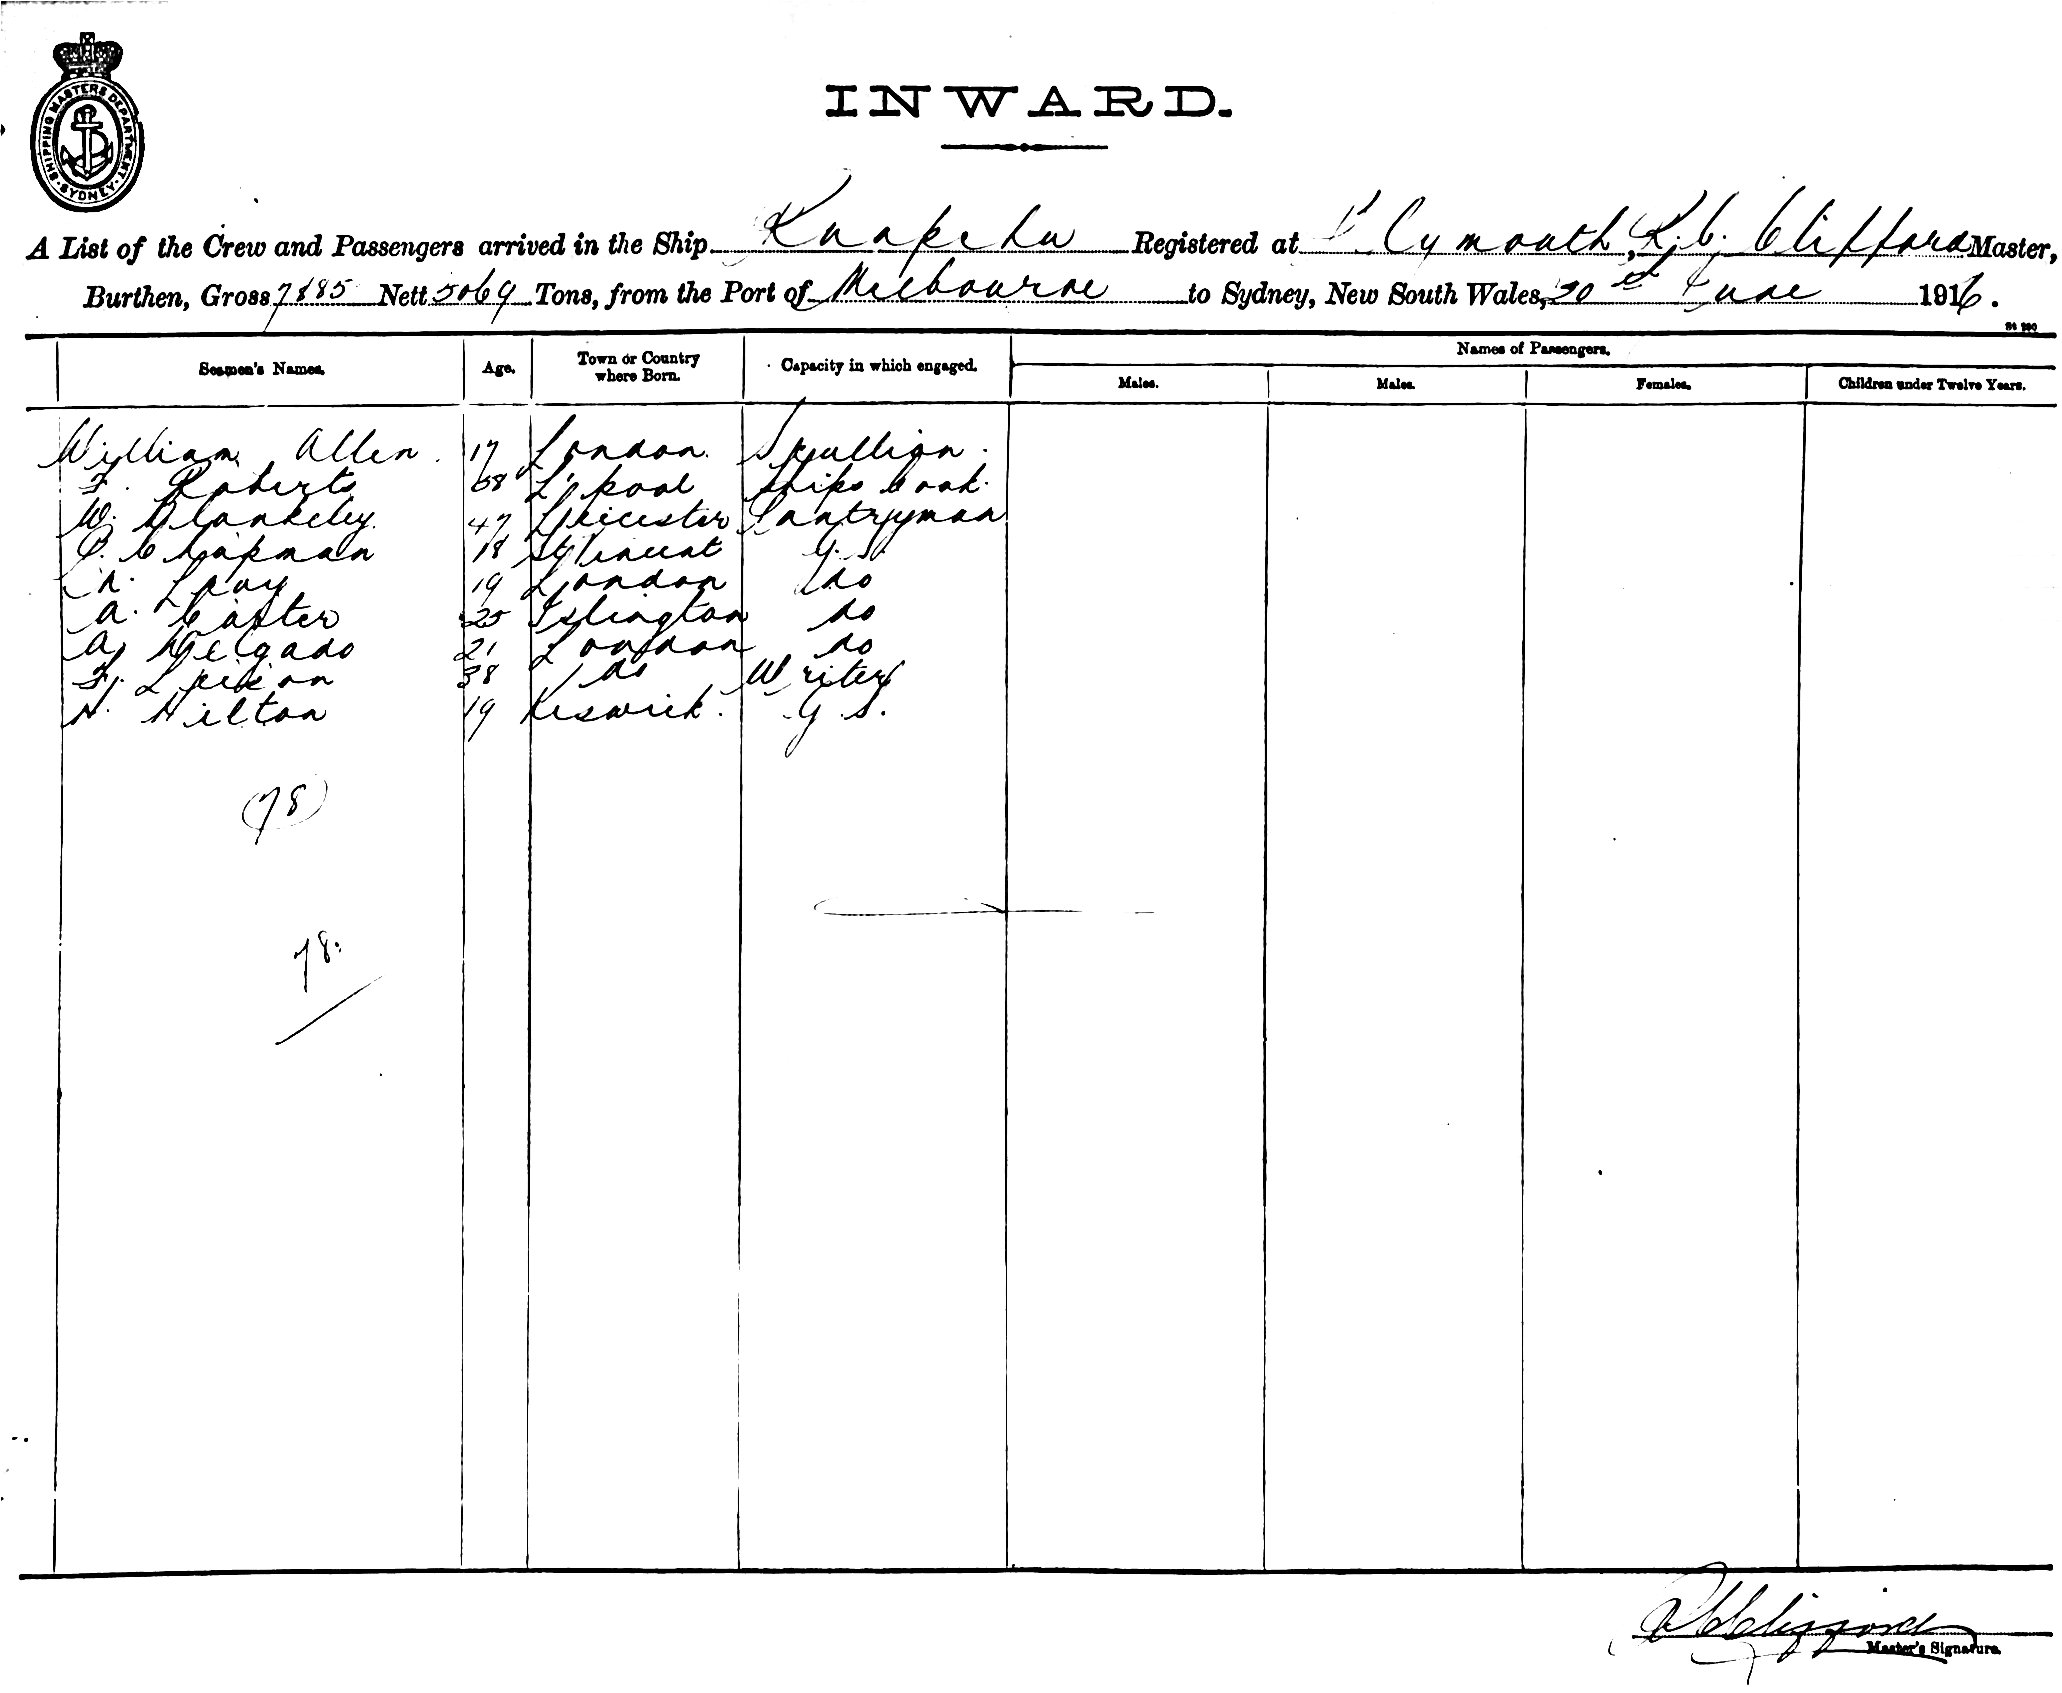 SHIPPING MASTERS DEPARTMENT · SYDNEY ·
INWARD.
A List of the Crew and Passengers arrived in the Ship Ruapehu Registered at Plymouth, K. C. Clifford Master,
Burthen, Gross 7885 Nett 5069 Tons, from the Port of Melbourne to Sydney, New South Wales, June 1916.
Seamen's Names. Age. Town or Country where Born. Capacity in which engaged. Names of Passengers.
Males. Males. Females. Children under Twelve Years.
William Allen. 17 London. Scullion.
F. Roberts 58 L'pool Ships Cook.
W. Blankeley. 47 Leicester Pantryman
C. Chapman 18 St Vincent G. S.
Levy 19 London do
A. Carter 25 Islington do
A. Delgado 21 London do
F. 38 do Writer
H. Hilton 19 Keswick. G. S.
(78)
78
Clifford
Master's Signature.